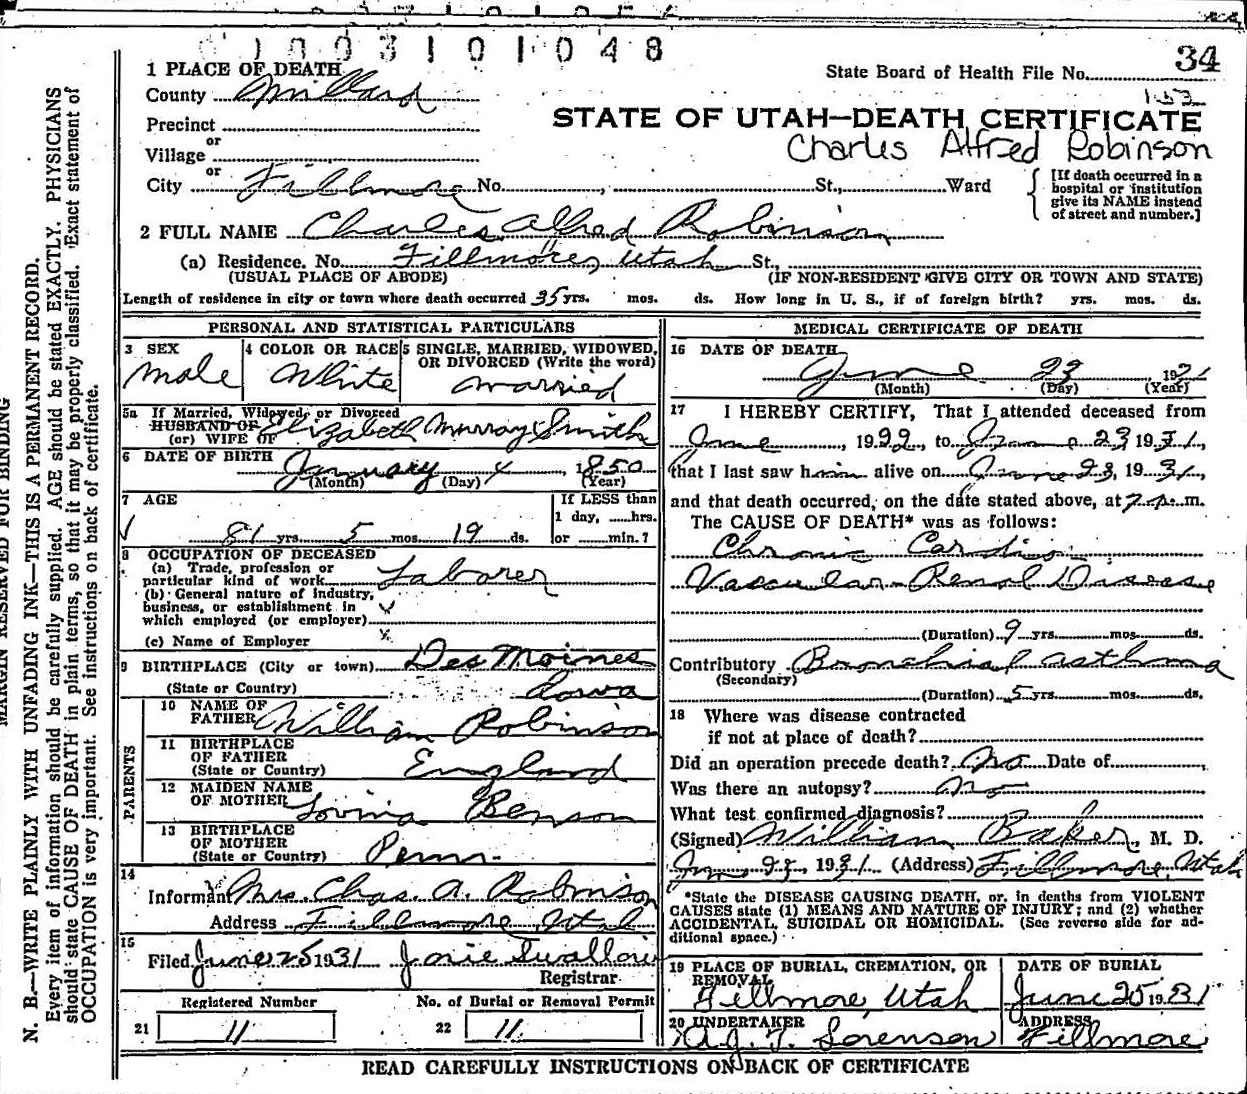 1003101048
34
State Board of Health File No.
153
1 PLACE OF DEATH
County Millard
STATE OF UTAH—DEATH CERTIFICATE
Precinct
or
Charles Alfred Robinson
Village
or
City Fillmore No. , St., Ward
[If death occurred in a
hospital or institution
give its NAME instead
of street and number.]
2 FULL NAME Charles Alfred Robinson
(a) Residence. No. Fillmore, Utah St.,
(USUAL PLACE OF ABODE) (IF NON-RESIDENT GIVE CITY OR TOWN AND STATE)
Length of residence in city or town where death occurred 35 yrs. mos. ds. How long in U. S., if of foreign birth? yrs. mos. ds.
PERSONAL AND STATISTICAL PARTICULARS
3 SEX
Male
4 COLOR OR RACE
White
5 SINGLE, MARRIED, WIDOWED,
OR DIVORCED (Write the word)
Married
5a If Married, Widowed, or Divorced
HUSBAND OF
(or) WIFE OF Elizabeth Murray Smith
6 DATE OF BIRTH
January 4, 1850
(Month) (Day) (Year)
7 AGE
81 yrs. 5 mos. 19 ds.
If LESS than
1 day, ......hrs.
or ........min.?
8 OCCUPATION OF DECEASED
(a) Trade, profession or
particular kind of work Laborer
(b) General nature of industry,
business, or establishment in
which employed (or employer)
(c) Name of Employer
9 BIRTHPLACE (City or town) Des Moines
(State or Country) Iowa
PARENTS
10 NAME OF
FATHER William Robinson
11 BIRTHPLACE
OF FATHER
(State or Country) England
12 MAIDEN NAME
OF MOTHER Lovina Benson
13 BIRTHPLACE
OF MOTHER
(State or Country) Penn.
14
Informant Mrs. Chas. A. Robinson
Address Fillmore Utah
15
Filed June 25 1931 Josie Swallow
Registrar
Registered Number
21 11
No. of Burial or Removal Permit
22 11
MEDICAL CERTIFICATE OF DEATH
16 DATE OF DEATH
June 23, 1931
(Month) (Day) (Year)
17 I HEREBY CERTIFY, That I attended deceased from
June , 1922, to June 23 1931,
that I last saw him alive on June 23, 1931,
and that death occurred, on the date stated above, at 7 m.
The CAUSE OF DEATH* was as follows:
Chronic Cardio-
Vascular-Renal Disease
(Duration) 9 yrs. mos. ds.
Contributory Bronchial asthma
(Secondary)
(Duration) 5 yrs. mos. ds.
18 Where was disease contracted
if not at place of death?
Did an operation precede death? No Date of
Was there an autopsy? no
What test confirmed diagnosis?
(Signed) William Baker, M. D.
1931. (Address) Fillmore, Utah
*State the DISEASE CAUSING DEATH, or, in deaths from VIOLENT
CAUSES state (1) MEANS AND NATURE OF INJURY; and (2) whether
ACCIDENTAL, SUICIDAL OR HOMICIDAL. (See reverse side for ad-
ditional space.)
19 PLACE OF BURIAL, CREMATION, OR
REMOVAL
Fillmore, Utah
DATE OF BURIAL
June 25 1931
20 UNDERTAKER
Sorenson
ADDRESS
Fillmore
READ CAREFULLY INSTRUCTIONS ON BACK OF CERTIFICATE
MARGIN RESERVED FOR BINDING
N. B.—WRITE PLAINLY WITH UNFADING INK—THIS IS A PERMANENT RECORD.
Every item of information should be carefully supplied. AGE should be stated EXACTLY. PHYSICIANS
should state CAUSE OF DEATH in plain terms, so that it may be properly classified. Exact statement of
OCCUPATION is very important. See instructions on back of certificate.